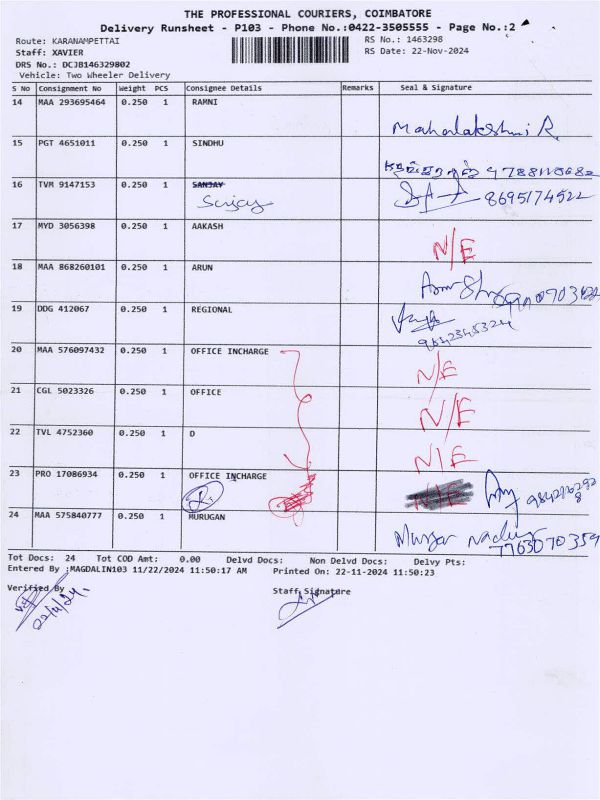 THE PROFESSIONAL COURIERS, COIMBATORE
Delivery Runsheet - P103 - Phone No.:0422-3505555 - Page No.:2
Route: KARANAMPETTAI RS No.: 1463298
Staff: XAVIER RS Date: 22-Nov-2024
DRS No.: DCJB146329802
Vehicle: Two Wheeler Delivery
S No Consignment No Weight PCS Consignee Details Remarks Seal & Signature
14 MAA 293695464 0.250 1 RAMNI
Mahalakshmi R.
15 PGT 4651011 0.250 1 SINDHU
9788110682
16 TVM 9147153 0.250 1 SANJAY
Sanjay 8695174522
17 MYD 3056398 0.250 1 AAKASH
N/E
18 MAA 868260101 0.250 1 ARUN
19 DDG 412067 0.250 1 REGIONAL
9842345324
20 MAA 576097432 0.250 1 OFFICE INCHARGE
N/E
21 CGL 5023326 0.250 1 OFFICE
N/E
22 TVL 4752360 0.250 1 D
N/E
23 PRO 17086934 0.250 1 OFFICE INCHARGE
N/E
24 MAA 575840777 0.250 1 MURUGAN
7763070359
Tot Docs: 24 Tot COD Amt: 0.00 Delvd Docs: Non Delvd Docs: Delvy Pts:
Entered By :MAGDALIN103 11/22/2024 11:50:17 AM Printed On: 22-11-2024 11:50:23
Verified By Staff Signature
22/11/24